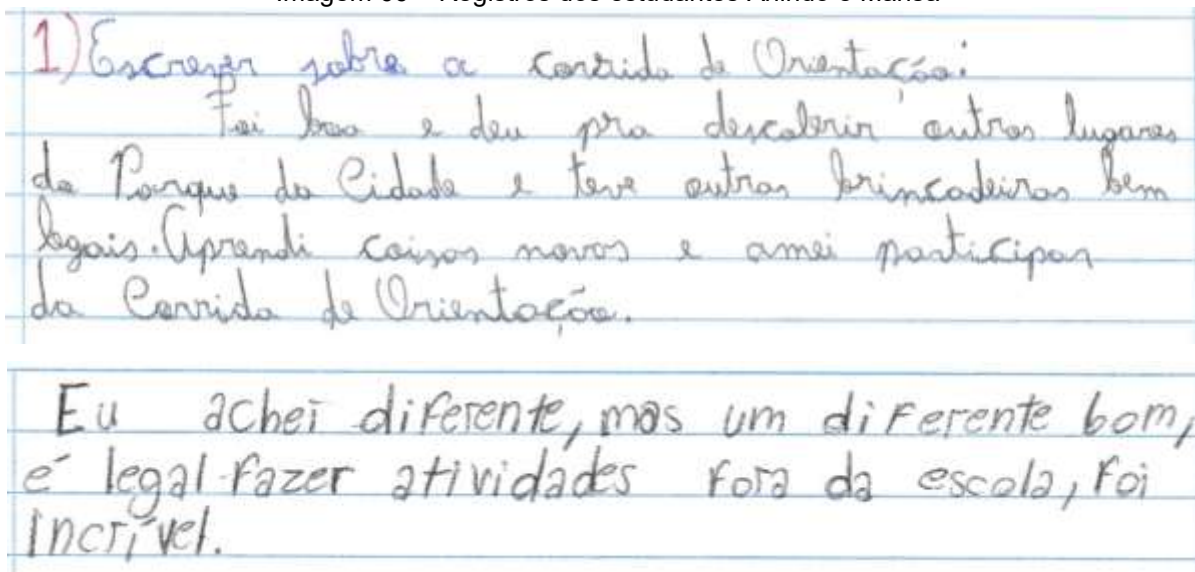 1) Escrever sobre a corrida de Orientação:
Foi boa e deu pra descobrir outros lugares
do Parque da Cidade e teve outras brincadeiras bem
legais. Aprendi coisas novas e amei participar
da Corrida de Orientação.
Eu achei diferente, mas um diferente bom,
é legal fazer atividades fora da escola, foi
incrível.